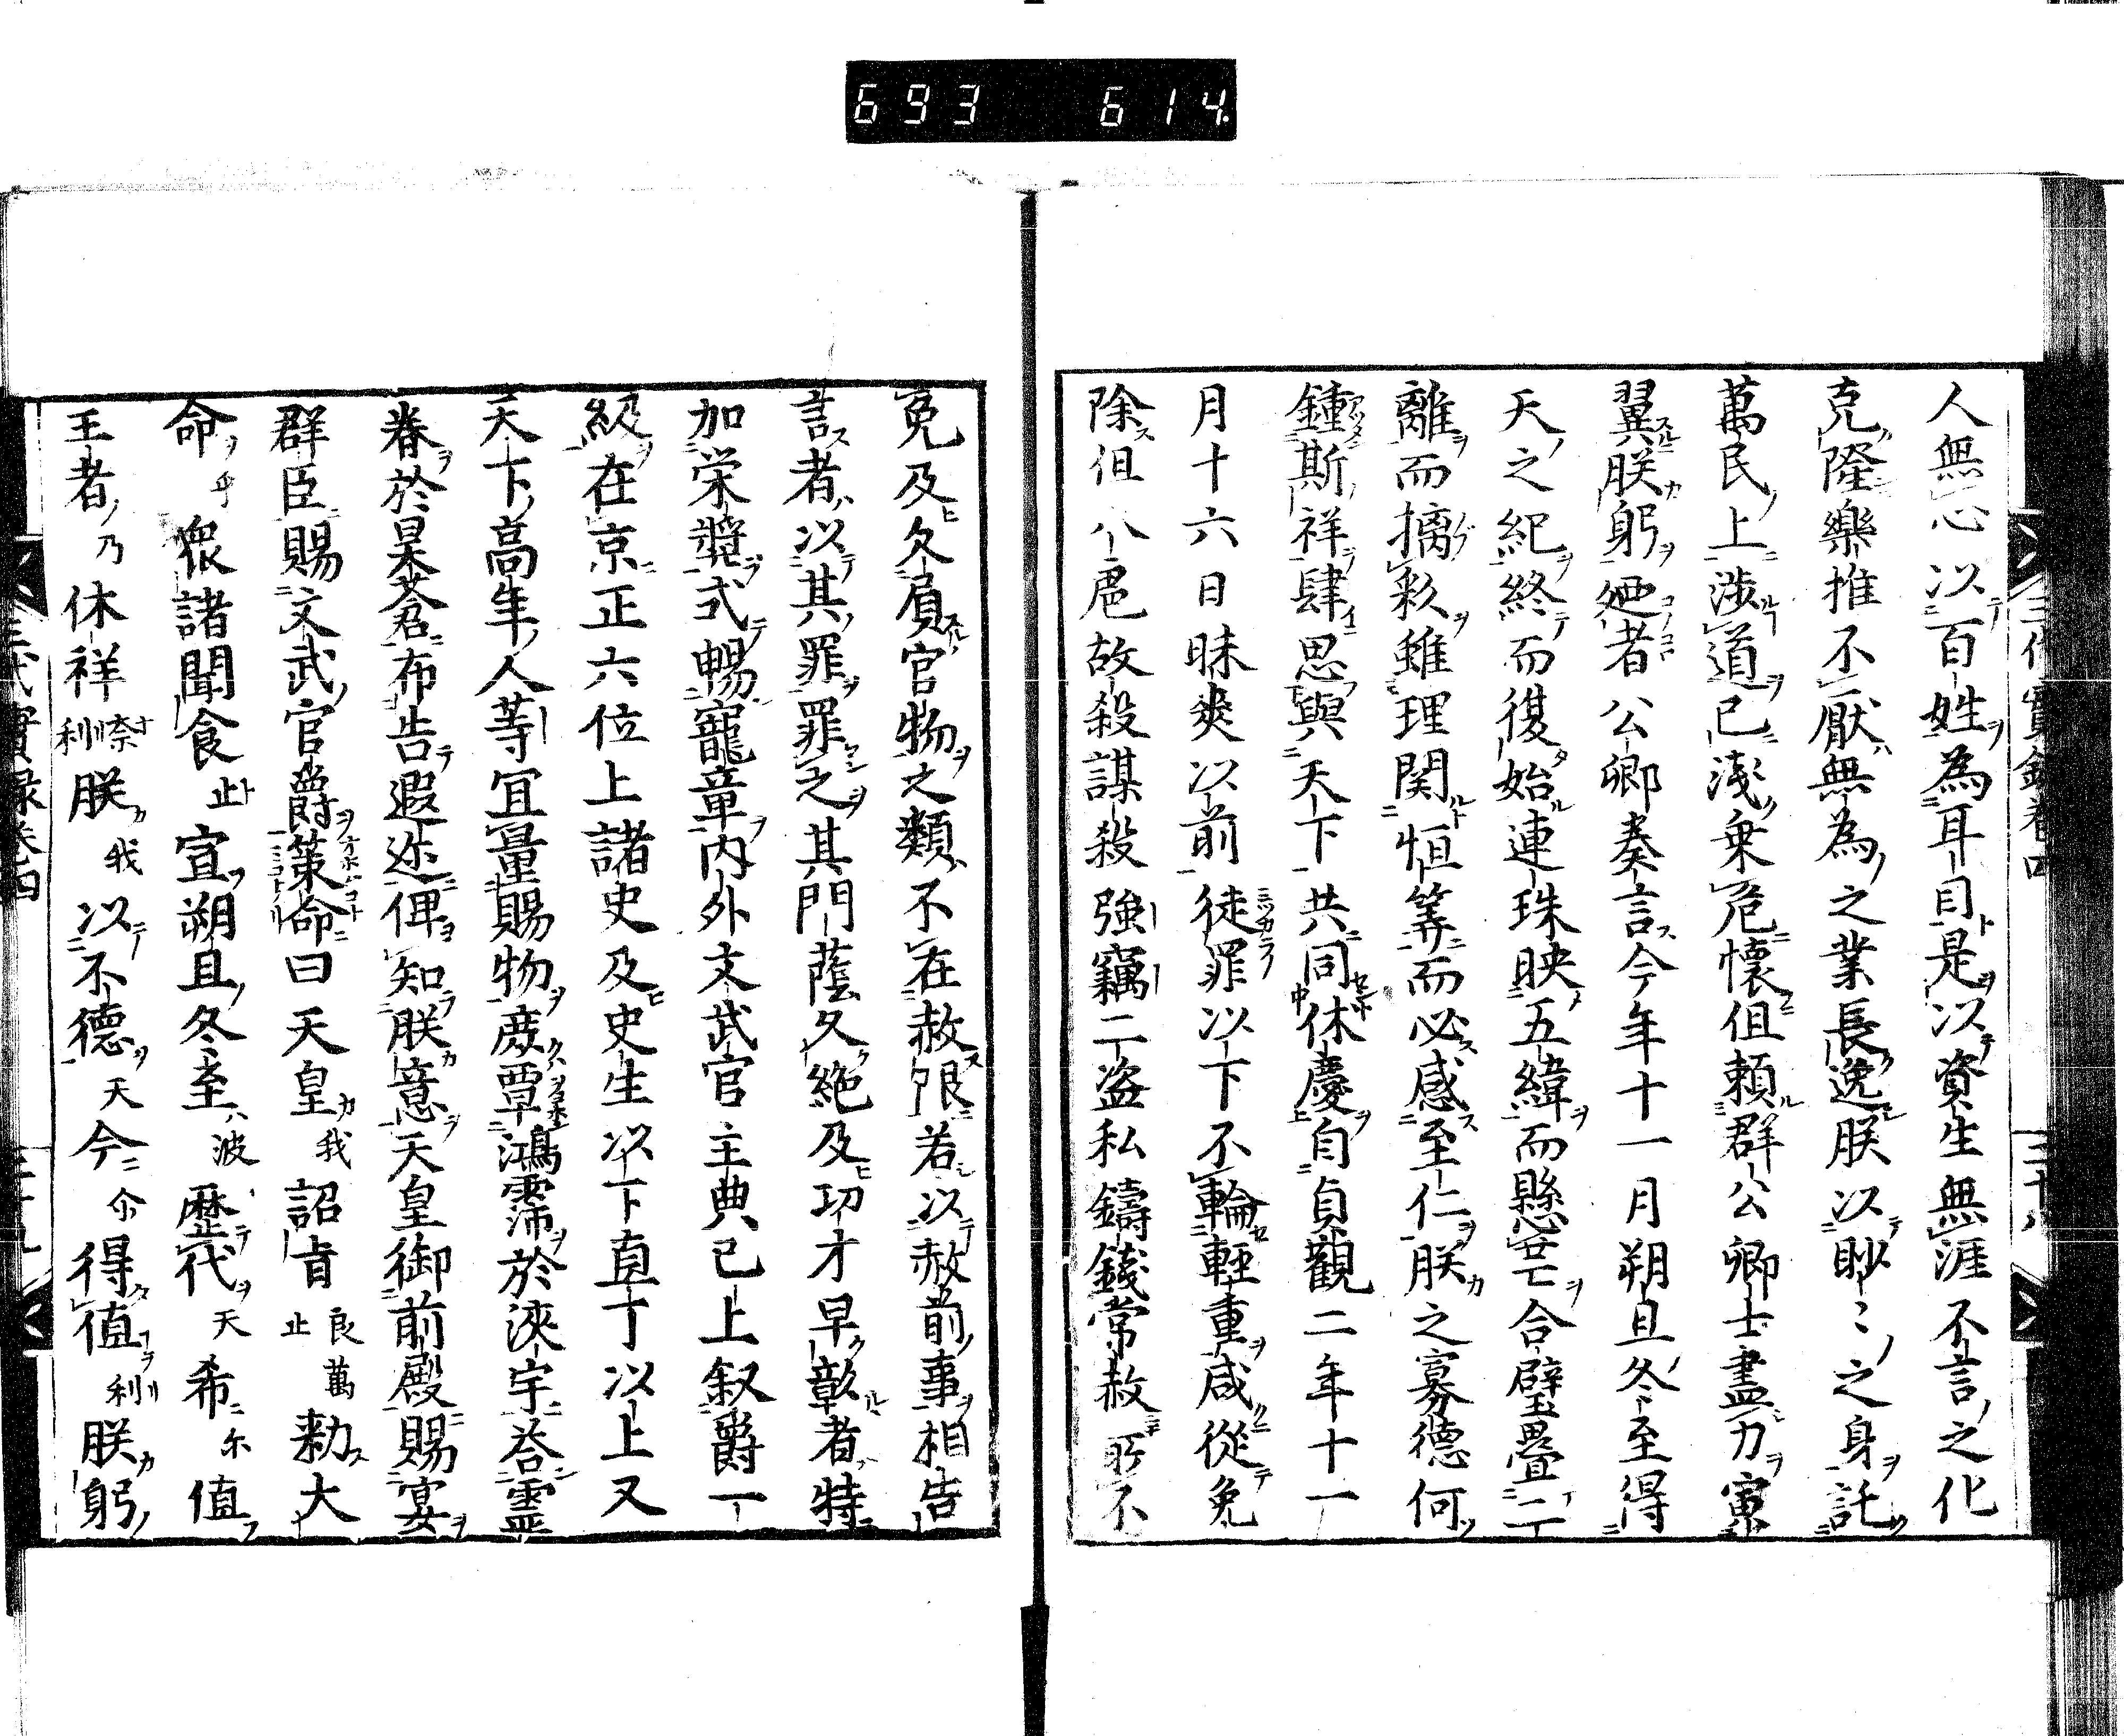 693 614
人無心以百姓為耳目是以資生無涯不言之化
克隆樂推不厭無為之業長逸朕以眇〻之身託
萬民上渉道已淺乗危懷伹頼群公卿士盡力寅
翼朕躬廼者公卿奏言今年十一月朔旦冬至得
天之紀終而復始連珠映五緯而懸芒合璧疊二
離而摛彩雖理関恒筭而必感至仁朕之寡德何
鍾斯祥肆思與天下共同休慶自貞觀二年十一
月十六日昧爽以前徒罪以下不輪輕重咸從免
除伹八虐故殺謀殺強竊二盗私鑄錢常赦所不
三代實録卷四
三十八
免及久負官物之類不在赦限若以赦前事相告
言者以其罪罪之其門蔭久絶及功才早彰者特
加栄奬式暢寵章内外文武官主典已上叙爵一
級在京正六位上諸史及史生以下直丁以上又
天下高年人等冝量賜物庶覃鴻霈於浹宇荅靈
眷於昊蒼布告遐迩俾知朕意天皇御前殿賜宴
群臣賜文武官爵策命曰天皇我詔旨良萬止勅大
命乎衆諸聞食止宣朔旦冬至波歴代天希尓値
王者乃休祥奈利朕我以不德天今尓得値利朕躬
三代實録卷四
三十九